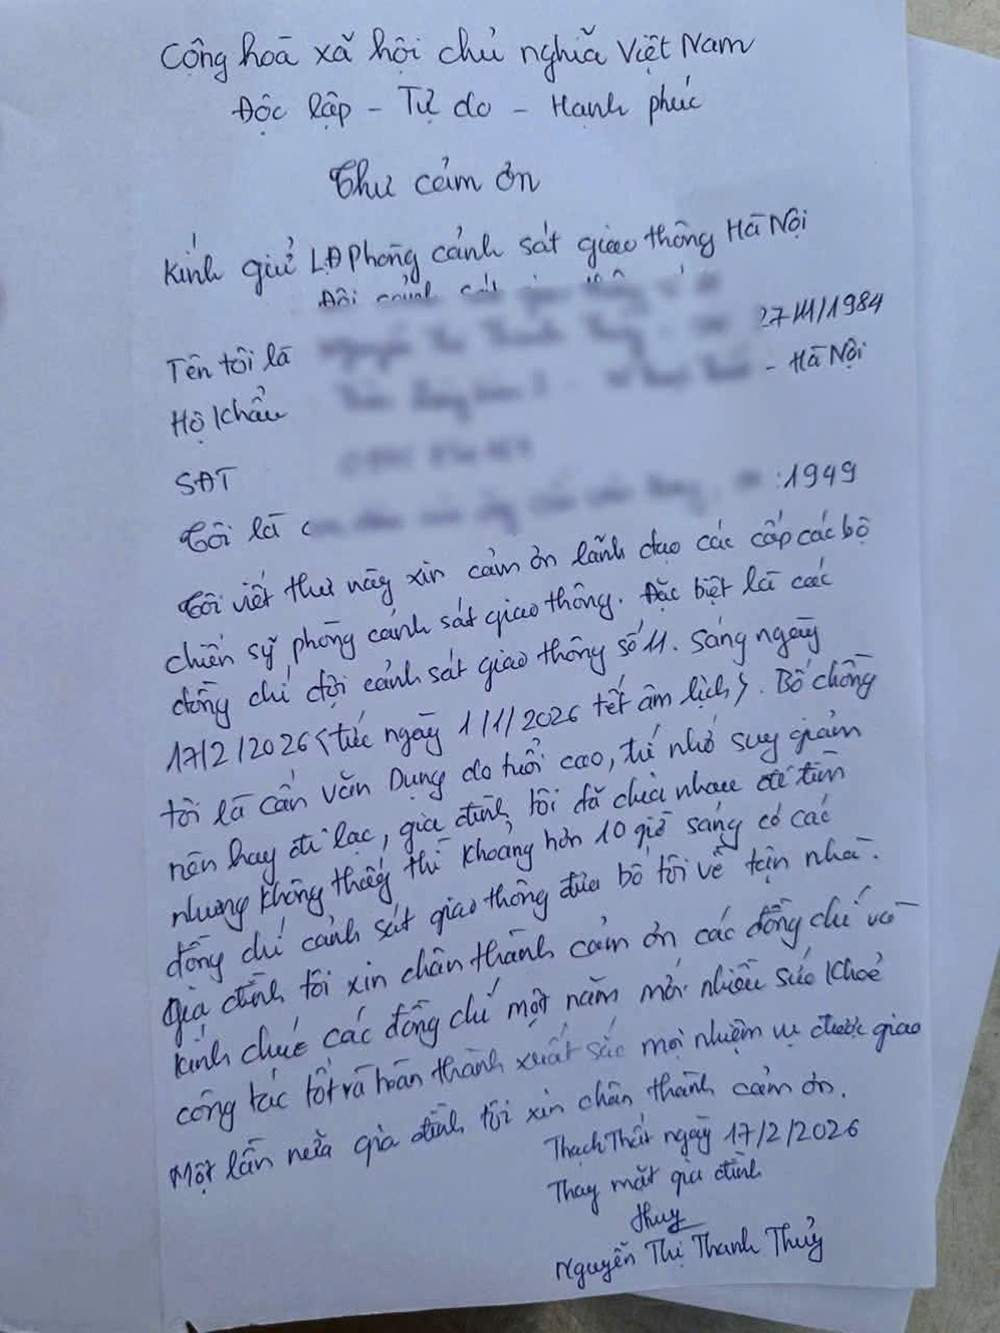 Cộng hoà xã hội chủ nghĩa Việt Nam
Độc lập - Tự do - Hạnh phúc
Thư cảm ơn
Kính gửi LĐ Phòng cảnh sát giao thông Hà Nội
Đội cảnh
Tên tôi là 27/11/1984
Hộ khẩu - Hà Nội
SĐT
Tôi là : 1949
Tôi viết thư này xin cảm ơn lãnh đạo các cấp các bộ
chiến sỹ phòng cảnh sát giao thông. Đặc biệt là các
đồng chí đội cảnh sát giao thông số 11. Sáng ngày
17/2/2026 <tức ngày 1/1/2026 tết âm lịch>. Bố chồng
tôi là Cấn Văn Dụng do tuổi cao, trí nhớ suy giảm
nên hay đi lạc, gia đình tôi đã chia nhau đi tìm
nhưng không thấy thì khoảng hơn 10 giờ sáng có các
đồng chí cảnh sát giao thông đưa bố tôi về tận nhà.
Gia đình tôi xin chân thành cảm ơn các đồng chí và
kính chúc các đồng chí một năm mới nhiều sức khoẻ
công tác tốt và hoàn thành xuất sắc mọi nhiệm vụ được giao
Một lần nữa gia đình tôi xin chân thành cảm ơn.
Thạch Thất ngày 17/2/2026
Thay mặt gia đình
Thuỷ
Nguyễn Thị Thanh Thuỷ